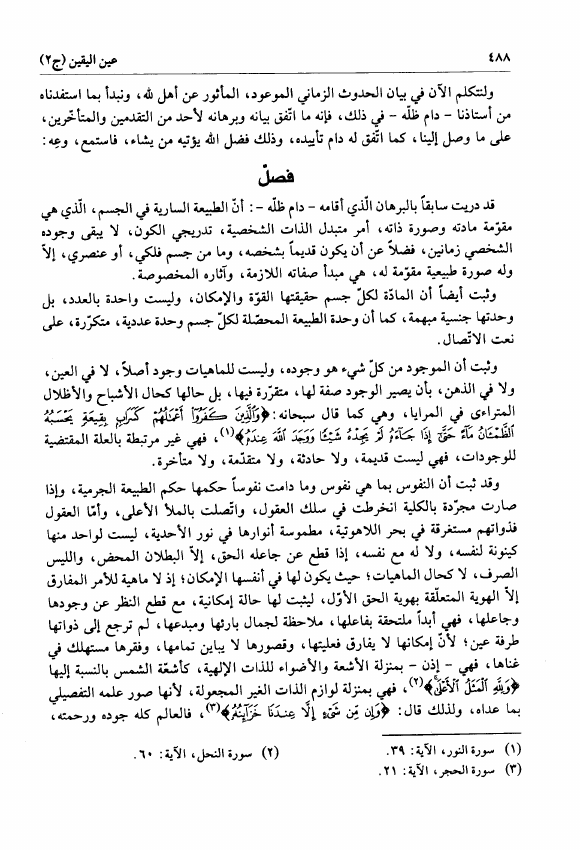 ٤٨٨
عين اليقين (ج٢)
ولنتكلم الآن في بيان الحدوث الزماني الموعود، المأثور عن أهل لله، ونبدأ بما استفدناه
من أستاذنا - دام ظلّه - في ذلك، فإنه ما اتّفق بيانه وبرهانه لأحد من التقدمين والمتأخّرين،
على ما وصل إلينا، كما اتّفق له دام تأييده، وذلك فضل الله يؤتيه من يشاء، فاستمع، وعِه:
فصلٌ
قد دريت سابقاً بالبرهان الّذي أقامه - دام ظلّه -: أنّ الطبيعة السارية في الجسم، الّذي هي
مقوّمة مادته وصورة ذاته، أمر متبدل الذات الشخصية، تدريجي الكون، لا يبقى وجوده
الشخصي زمانين، فضلاً عن أن يكون قديماً بشخصه، وما من جسم فلكي، أو عنصري، إلاّ
وله صورة طبيعية مقوّمة له، هي مبدأ صفاته اللازمة، وآثاره المخصوصة.
وثبت أيضاً أن المادّة لكلّ جسم حقيقتها القوّة والإمكان، وليست واحدة بالعدد، بل
وحدتها جنسية مبهمة، كما أن وحدة الطبيعة المحصّلة لكلّ جسم وحدة عددية، متكرّرة، على
نعت الاتّصال.
وثبت أن الموجود من كلّ شيء هو وجوده، وليست للماهيات وجود أصلاً، لا في العين،
ولا في الذهن، بأن يصير الوجود صفة لها، متقرّرة فيها، بل حالها كحال الأشباح والأظلال
المتراءى في المرايا، وهي كما قال سبحانه: ﴿وَالَّذِينَ كَفَرُوٓا أَعْمَٰلُهُمْ كَسَرَابٍۭ بِقِيعَةٍ يَحْسَبُهُ
ٱلظَّمْـَٔانُ مَآءً حَتَّىٰٓ إِذَا جَآءَهُۥ لَمْ يَجِدْهُ شَيْـًٔا وَوَجَدَ ٱللَّهَ عِندَهُۥ﴾(١)، فهي غير مرتبطة بالعلة المقتضية
للوجودات، فهي ليست قديمة، ولا حادثة، ولا متقدّمة، ولا متأخرة.
وقد ثبت أن النفوس بما هي نفوس وما دامت نفوساً حكمها حكم الطبيعة الجرمية، وإذا
صارت مجرّدة بالكلية انخرطت في سلك العقول، واتّصلت بالملأ الأعلى، وأمّا العقول
فذواتهم مستغرقة في بحر اللاهوتية، مطموسة أنوارها في نور الأحدية، ليست لواحد منها
كينونة لنفسه، ولا له مع نفسه، إذا قطع عن جاعله الحق، إلاّ البطلان المحض، والليس
الصرف، لا كحال الماهيات؛ حيث يكون لها في أنفسها الإمكان؛ إذ لا ماهية للأمر المفارق
إلاّ الهوية المتعلّقة بهوية الحق الأوّل، ليثبت لها حالة إمكانية، مع قطع النظر عن وجودها
وجاعلها، فهي أبداً ملتحقة بفاعلها، ملاحظة لجمال بارئها ومبدعها، لم ترجع إلى ذواتها
طرفة عين؛ لأنّ إمكانها لا يفارق فعليتها، وقصورها لا يباين تمامها، وفقرها مستهلك في
غناها، فهي - إذن - بمنزلة الأشعة والأضواء للذات الإلهية، كأشعّة الشمس بالنسبة إليها
﴿وَلِلَّهِ ٱلْمَثَلُ ٱلْأَعْلَىٰ﴾(٢)، فهي بمنزلة لوازم الذات الغير المجعولة، لأنها صور علمه التفصيلي
بما عداه، ولذلك قال: ﴿وَإِن مِّن شَىْءٍ إِلَّا عِندَنَا خَزَآئِنُهُۥ﴾(٣)، فالعالم كله جوده ورحمته،
(١) سورة النور، الآية: ٣٩.
(٢) سورة النحل، الآية: ٦٠.
(٣) سورة الحجر، الآية: ٢١.